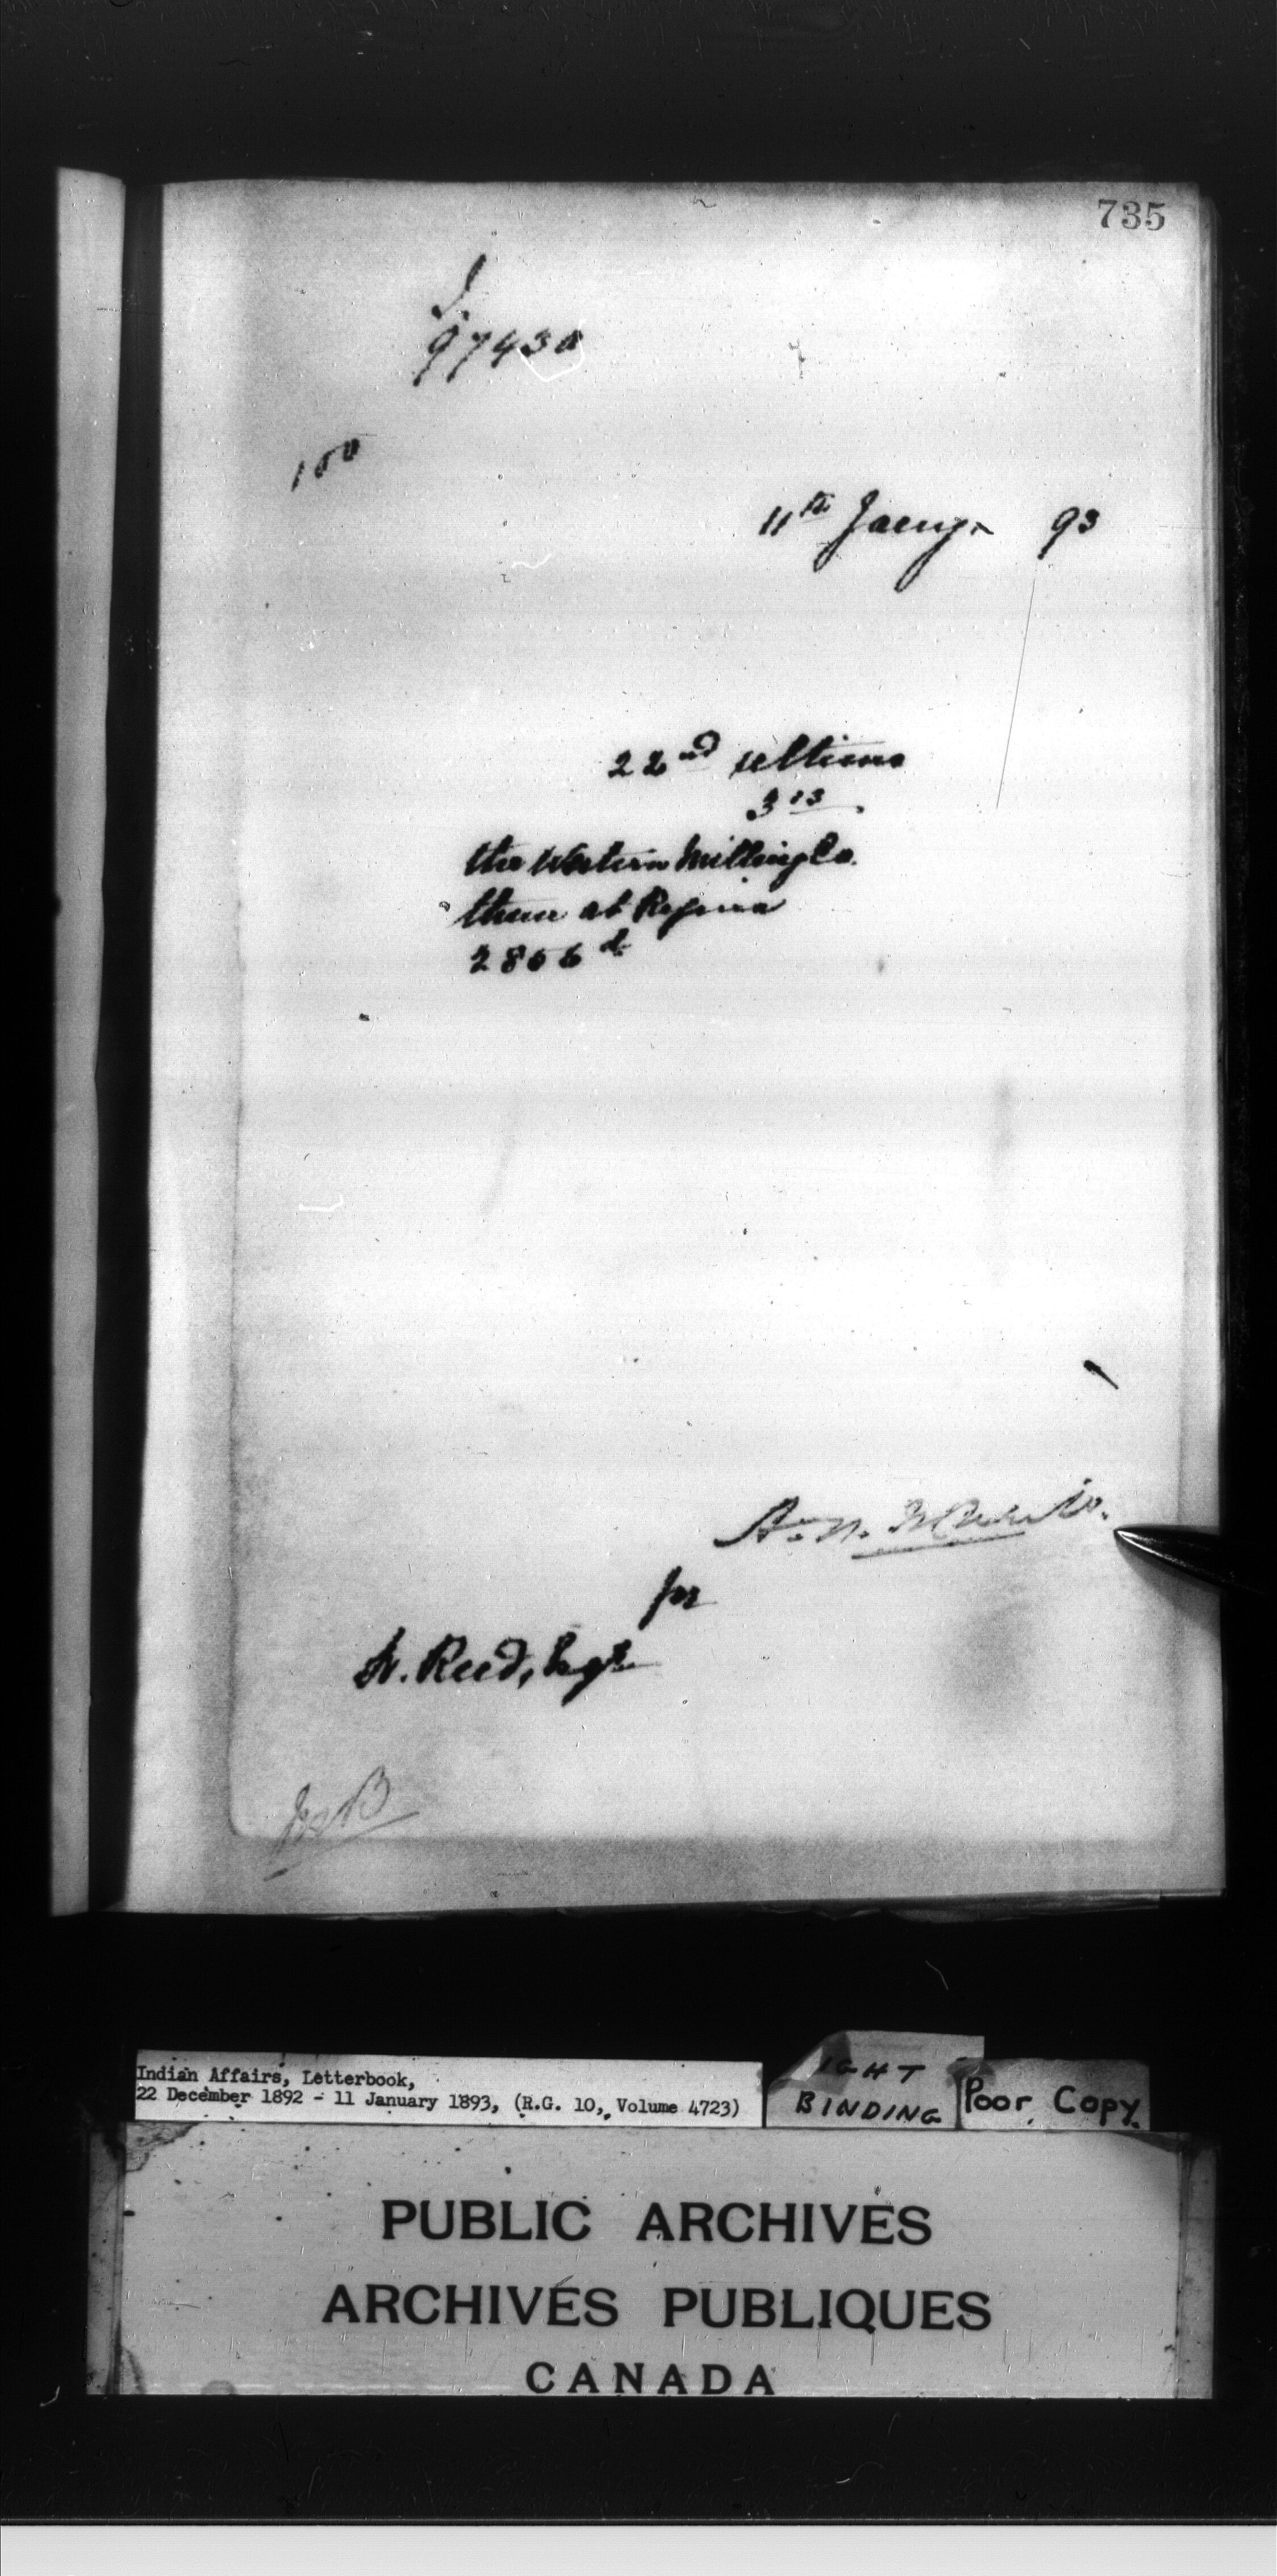 735
97430
100
11th Jany. 93
22nd ultimo
313
the Western Milling Co.
them at Regina
2866
A. N.
per
H. Reed, Esqr.
Indian Affairs, Letterbook,
22 December 1892 - 11 January 1893, (R.G. 10, Volume 4723)
IGHT
BINDING
Poor Copy.
PUBLIC ARCHIVES
ARCHIVES PUBLIQUES
CANADA